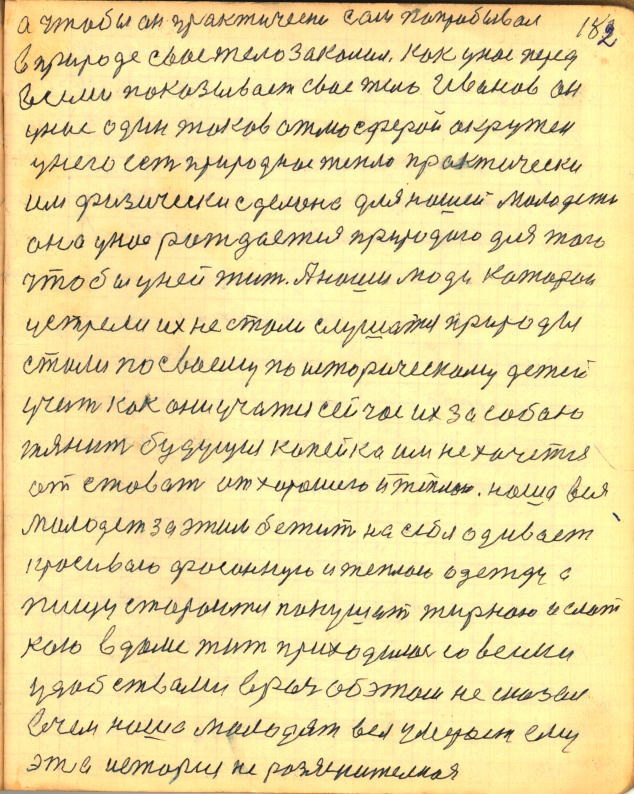 182
а чтобы он практически сам попробывал
в природе свае тело закалил. как у нас перед
всеми показывает свае тело Иванов он
у нас один таков атмосферой окружен
у него ест природнае тепло практически
им физически сделано для нашей молодежи
она у нас раждается природаю для того
чтобы у ней жит. А наши люди каторои
устрели их не стали слушатся природы
стали по своему по историческому детей
учит как они учатся сейчас их за собаю
тянит будущия капейка им не хочется
отстават от хорошего и теплаю. наша вся
молодеж за этим бежит на себя одивает
красиваю фасонную и теплаю одежду а
пищу стараится покушат жирною и слат
кою в доме жит приходилос со всеми
удобствами врач об этом не сказал
в чем наша молодят вся умерает ему
эта история не разяснителная